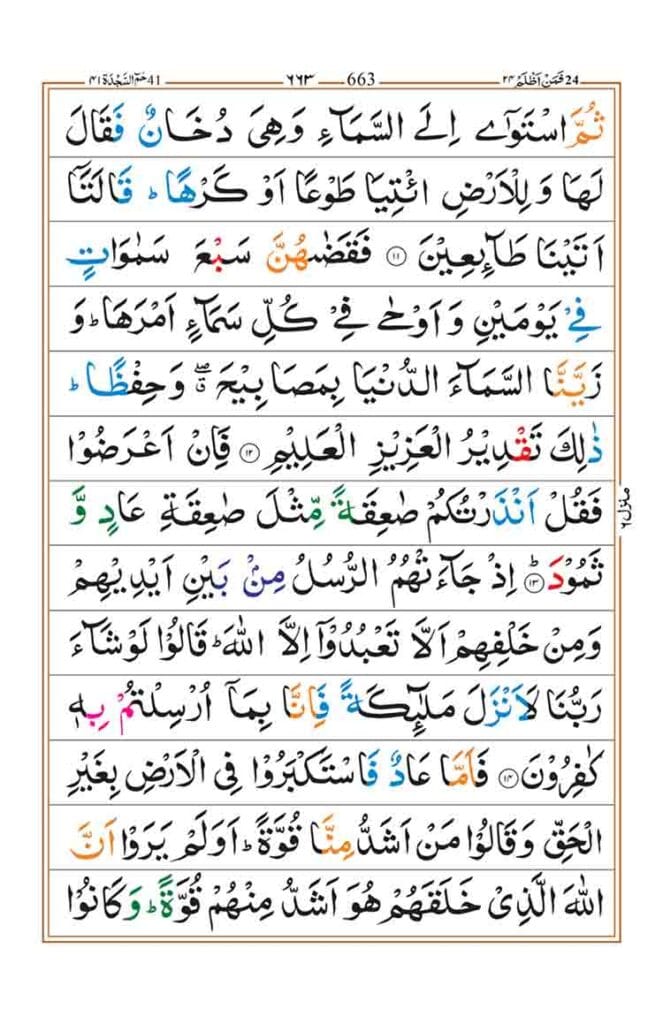 حٰمٓ السَّجْدَة ٤١ 41 ٦٦٣ 663 فَمَنْ اَظْلَمُ ٢٤ 24
ثُمَّ اسْتَوٰۤى اِلَى السَّمَآءِ وَهِىَ دُخَانٌ فَقَالَ
لَهَا وَلِلْاَرْضِ ائْتِيَا طَوْعًا اَوْ كَرْهًاؕ قَالَتَاۤ
اَتَيْنَا طَآئِعِيْنَ ۝۱۱ فَقَضٰٮهُنَّ سَبْعَ سَمٰوَاتٍ
فِىْ يَوْمَيْنِ وَاَوْحٰى فِىْ كُلِّ سَمَآءٍ اَمْرَهَاؕ وَ
زَيَّنَّا السَّمَآءَ الدُّنْيَا بِمَصَابِيْحَ ۖۗ وَحِفْظًاؕ
ذٰلِكَ تَقْدِيْرُ الْعَزِيْزِ الْعَلِيْمِ ۝۱۲ فَاِنْ اَعْرَضُوْا
فَقُلْ اَنْذَرْتُكُمْ صٰعِقَةً مِّثْلَ صٰعِقَةِ عَادٍ وَّ
ثَمُوْدَؕ ۝۱۳ اِذْ جَآءَتْهُمُ الرُّسُلُ مِنْۢ بَيْنِ اَيْدِيْهِمْ
وَمِنْ خَلْفِهِمْ اَلَّا تَعْبُدُوْۤا اِلَّا اللّٰهَؕ قَالُوْا لَوْ شَآءَ
رَبُّنَا لَاَنْزَلَ مَلٰٓئِكَةً فَاِنَّا بِمَاۤ اُرْسِلْتُمْ بِهٖ
كٰفِرُوْنَ ۝۱۴ فَاَمَّا عَادٌ فَاسْتَكْبَرُوْا فِى الْاَرْضِ بِغَيْرِ
الْحَقِّ وَقَالُوْا مَنْ اَشَدُّ مِنَّا قُوَّةًؕ اَوَلَمْ يَرَوْا اَنَّ
اللّٰهَ الَّذِىْ خَلَقَهُمْ هُوَ اَشَدُّ مِنْهُمْ قُوَّةًؕ وَكَانُوْا
منزل ٦